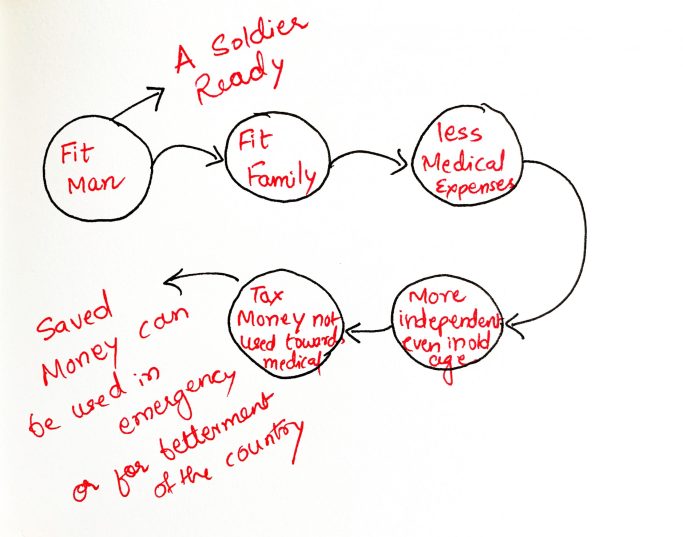 A Soldier
Ready
Fit
Man
Fit
Family
less
Medical
Expenses
More
independent
even in old
age
Tax
Money not
used towards
medical
Saved
Money can
be used in
emergency
or for betterment
of the country